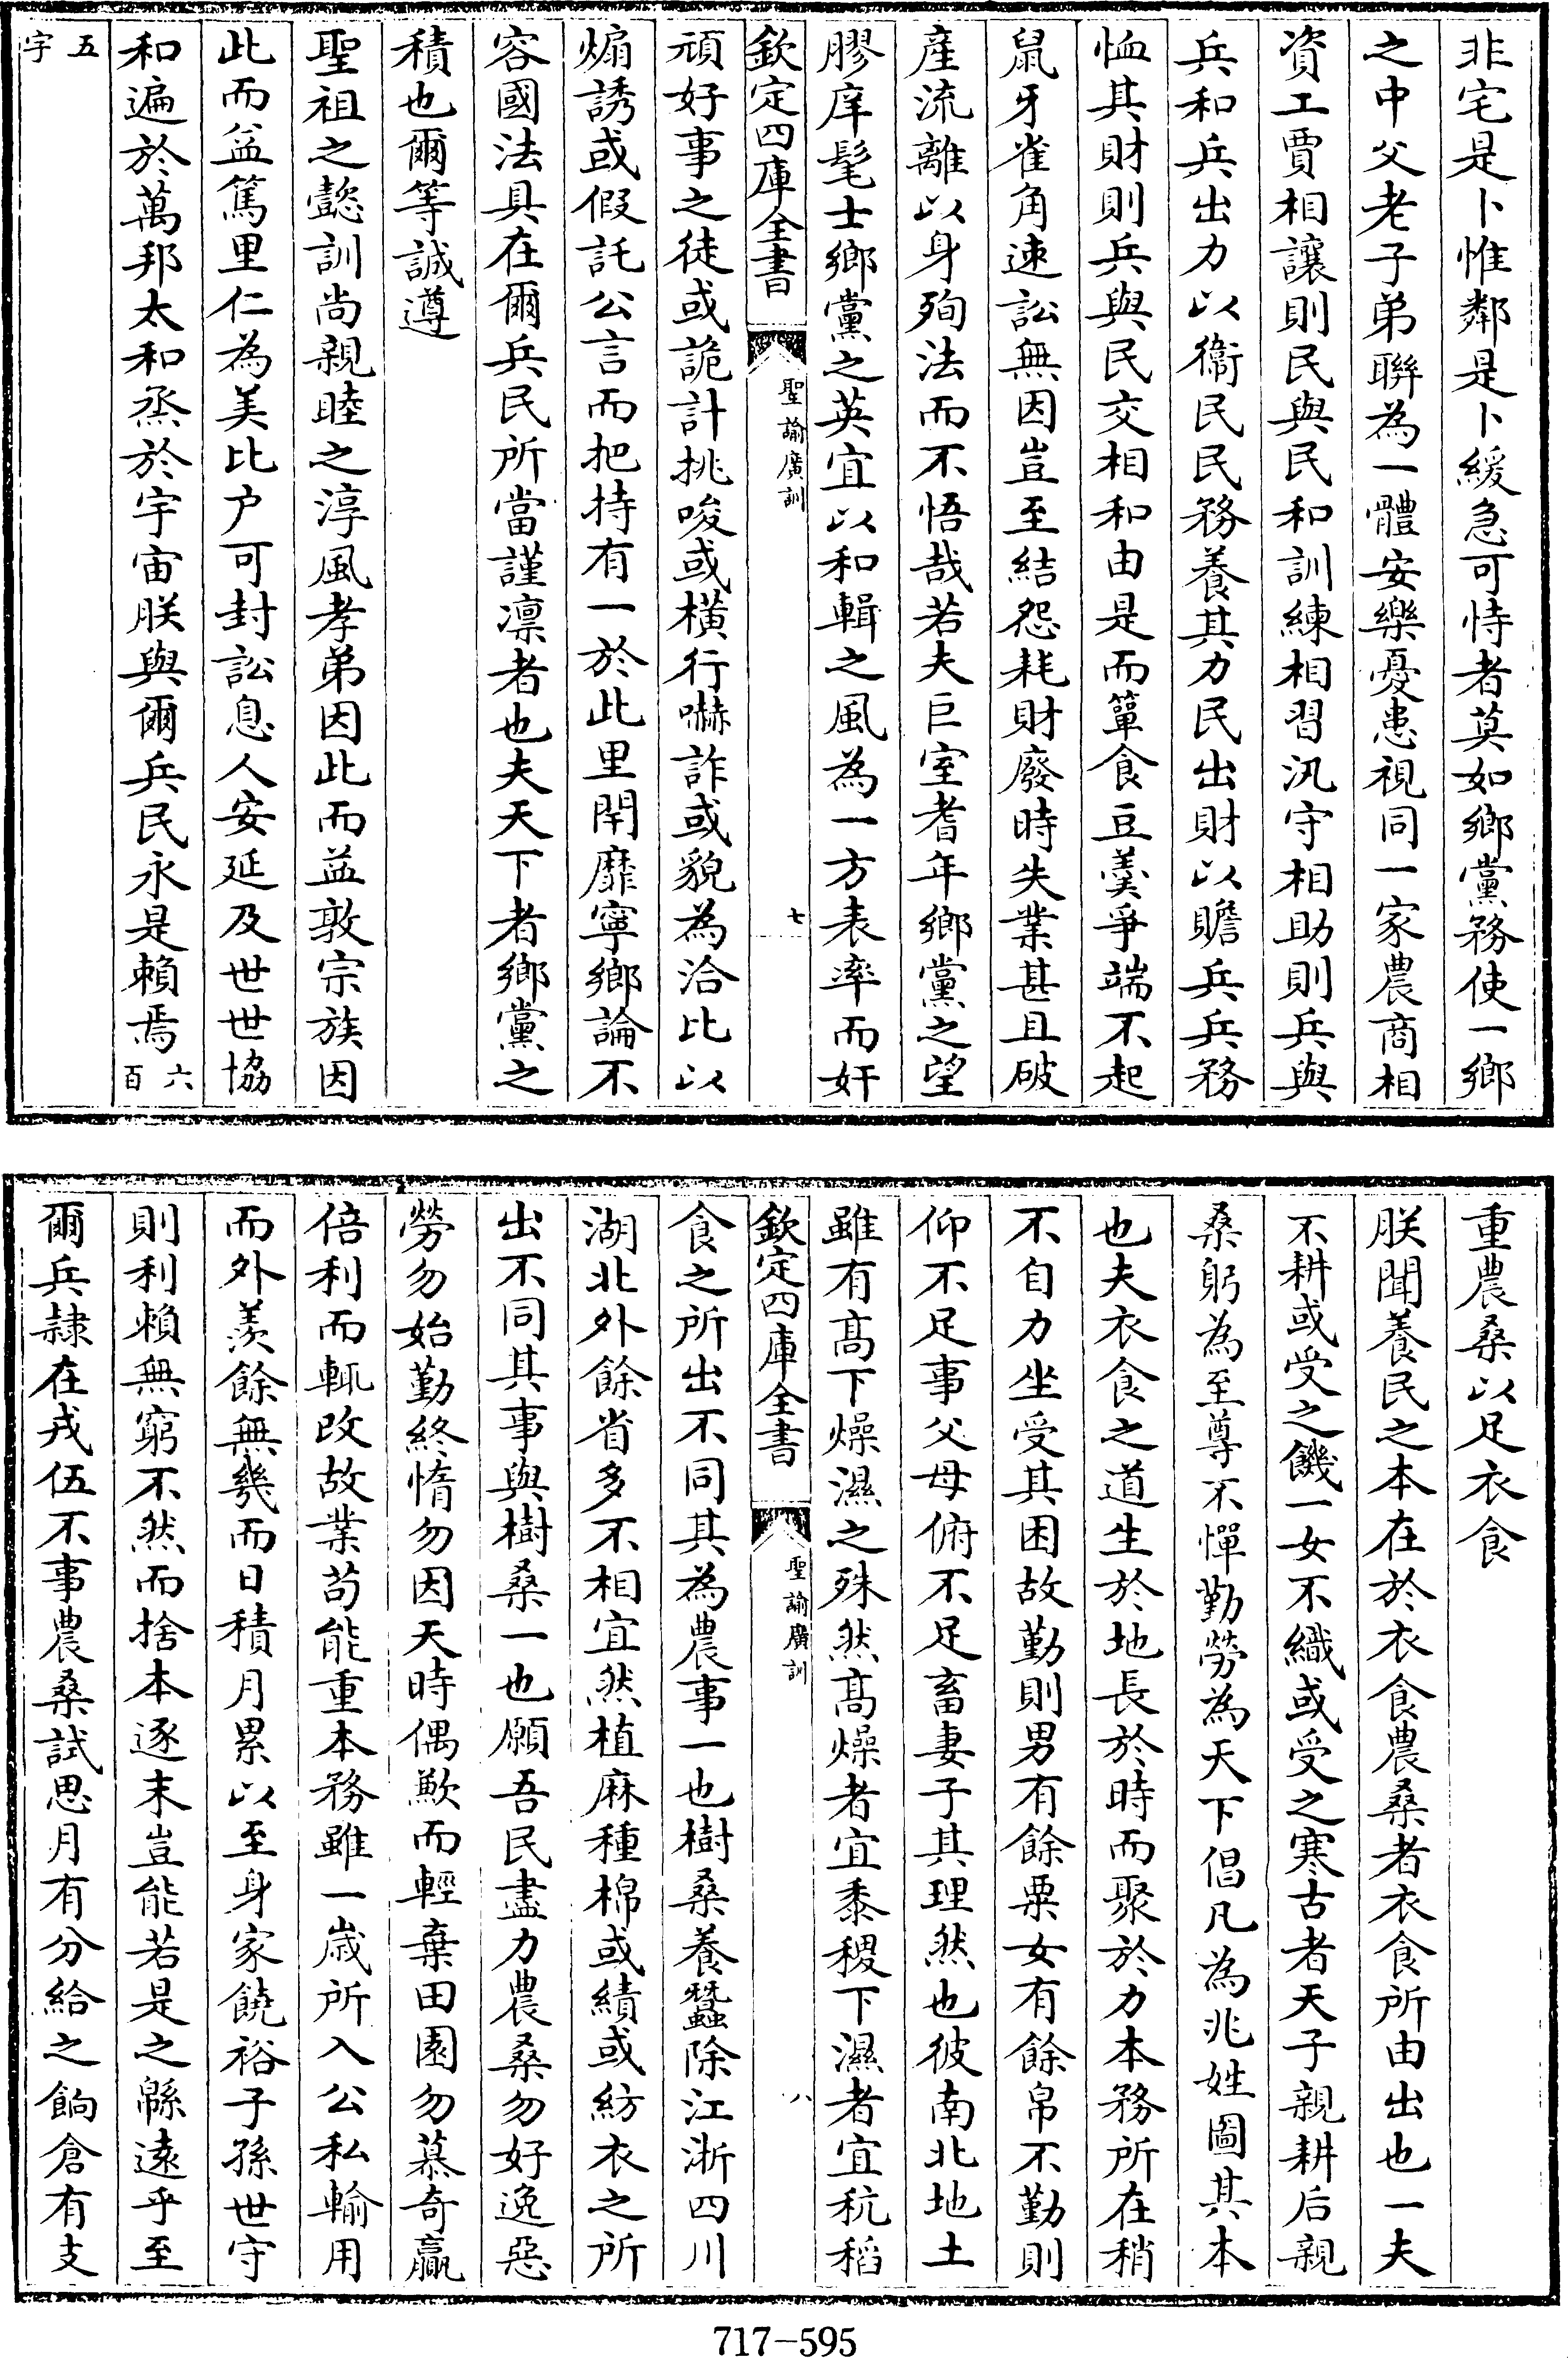 非宅是卜惟鄰是卜緩急可恃者莫如鄉黨務使一鄉
之中父老子弟聯為一體安樂憂患視同一家農商相
資工賈相讓則民與民和訓練相習汛守相助則兵與
兵和兵出力以衞民民務養其力民出財以贍兵兵務
恤其財則兵與民交相和由是而簞食豆羹爭端不起
鼠牙雀角速訟無因豈至結怨耗財廢時失業甚且破
產流離以身殉法而不悟哉若夫巨室耆年鄉黨之望
膠庠髦士鄉黨之英宜以和輯之風為一方表率而奸
欽定四庫全書
聖諭廣訓
七
頑好事之徒或詭計挑唆或橫行嚇詐或貌為洽比以
煽誘或假託公言而把持有一於此里閈靡寧鄉論不
容國法具在爾兵民所當謹凛者也夫天下者鄉黨之
積也爾等誠遵
聖祖之懿訓尚親睦之淳風孝弟因此而益敦宗族因
此而益篤里仁為美比户可封訟息人安延及世世協
和遍於萬邦太和烝於宇宙朕與爾兵民永是賴焉六百
五字
重農桑以足衣食
朕聞養民之本在於衣食農桑者衣食所由出也一夫
不耕或受之饑一女不織或受之寒古者天子親耕后親
桑躬為至尊不憚勤勞為天下倡凡為兆姓圖其本
也夫衣食之道生於地長於時而聚於力本務所在稍
不自力坐受其困故勤則男有餘粟女有餘帛不勤則
仰不足事父母俯不足畜妻子其理然也彼南北地土
雖有高下燥濕之殊然高燥者宜黍稷下濕者宜秔稻
欽定四庫全書
聖諭廣訓
八
食之所出不同其為農事一也樹桑養蠶除江淅四川
湖北外餘省多不相宜然植麻種棉或績或紡衣之所
出不同其事與樹桑一也願吾民盡力農桑勿好逸惡
勞勿始勤終惰勿因天時偶歉而輕棄田園勿慕奇贏
倍利而輒改故業苟能重本務雖一歲所入公私輸用
而外羨餘無幾而日積月累以至身家饒裕子孫世守
則利賴無窮不然而捨本逐末豈能若是之緜遠乎至
爾兵隷在戎伍不事農桑試思月有分給之餉倉有支
717-595